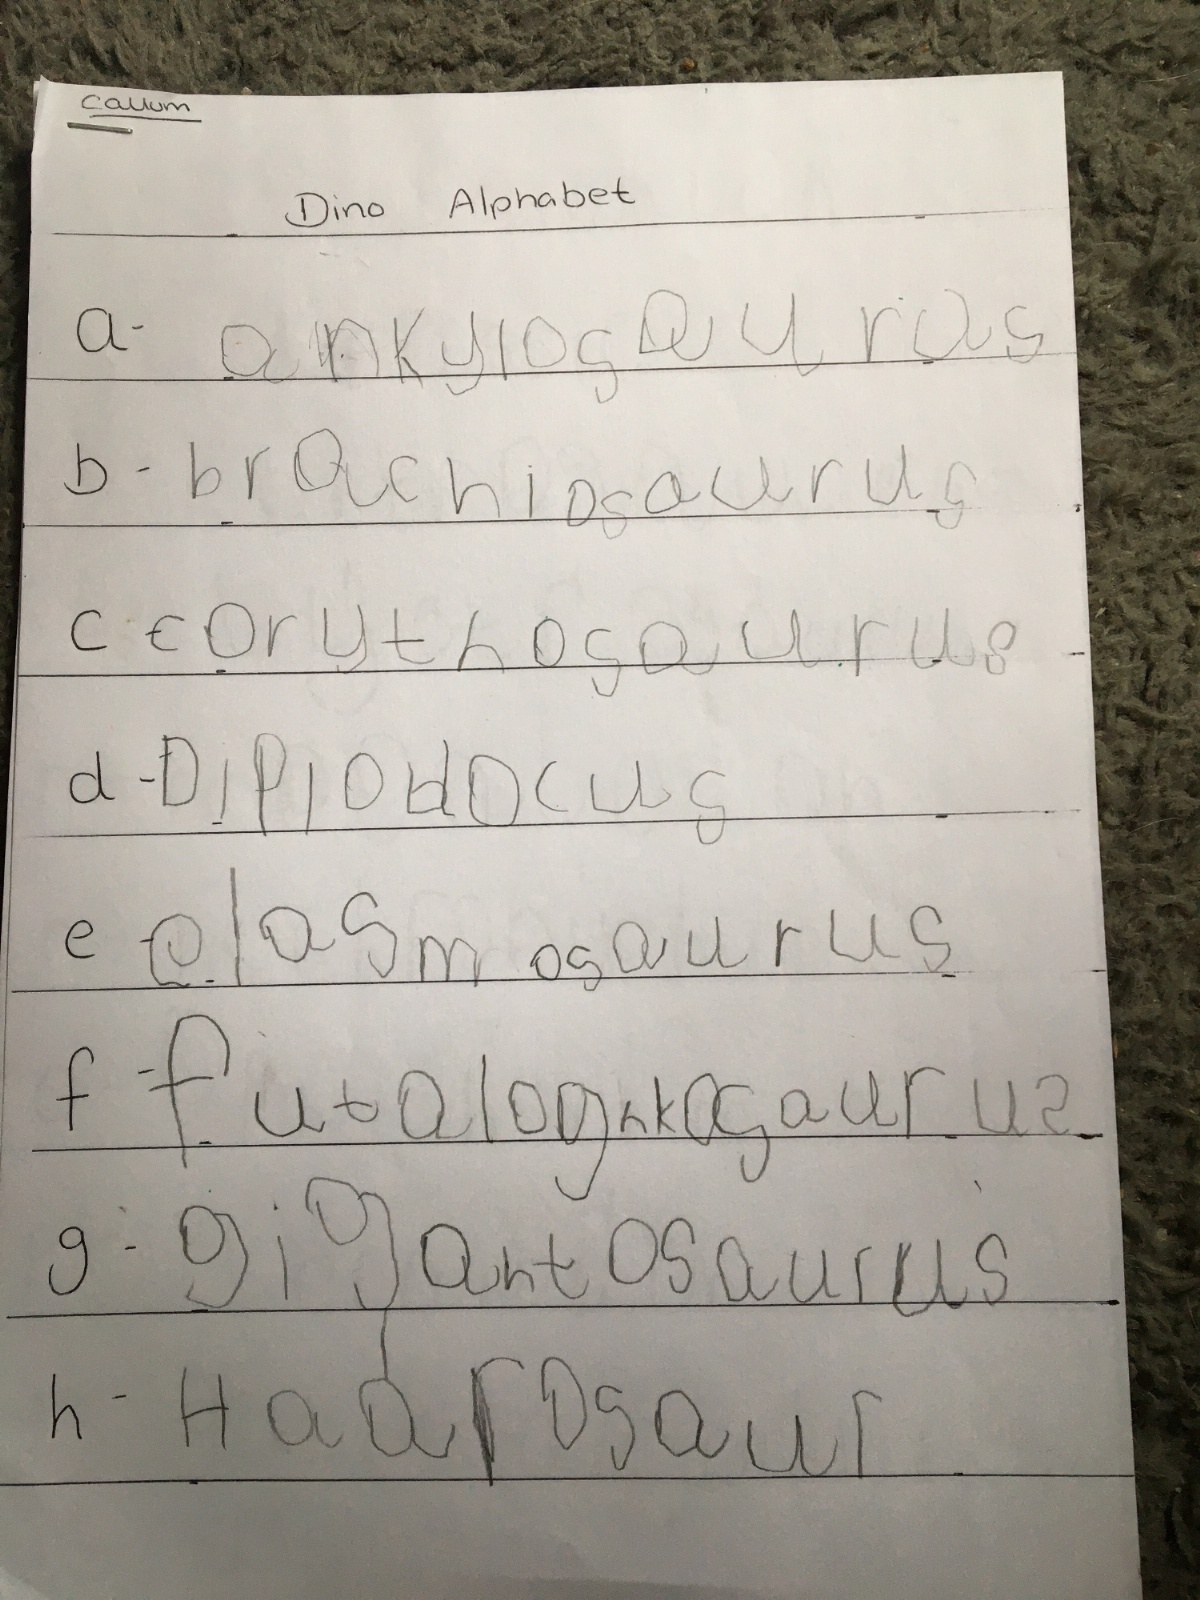 Callum
Dino Alphabet
a- ankylosauras
b - brachiosaurus
c corythosaurus
d - Diplodocus
e - elasmosaurus
f - futalognkosaurus
g - gigantosaurus
h - Hadrosaur